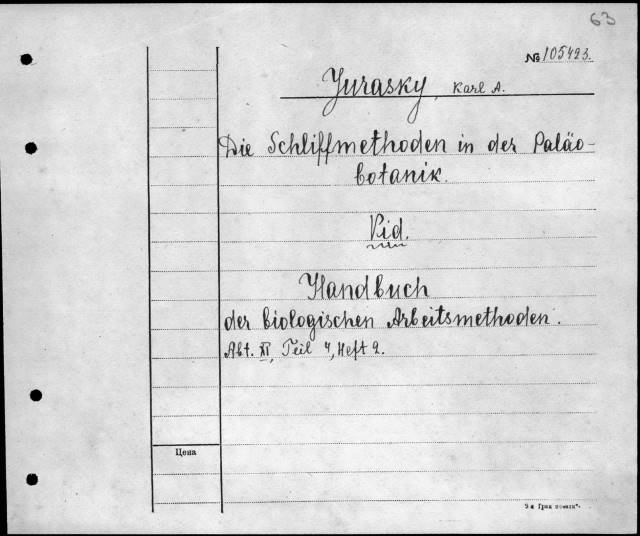 63
№ 105423.
Jurasky, Karl A.
Die Schliffmethoden in der Paläo-
botanik.
Vid.
Handbuch
der biologischen Arbeitsmethoden.
Abt. XI, Teil 4, Heft 2.
Цена